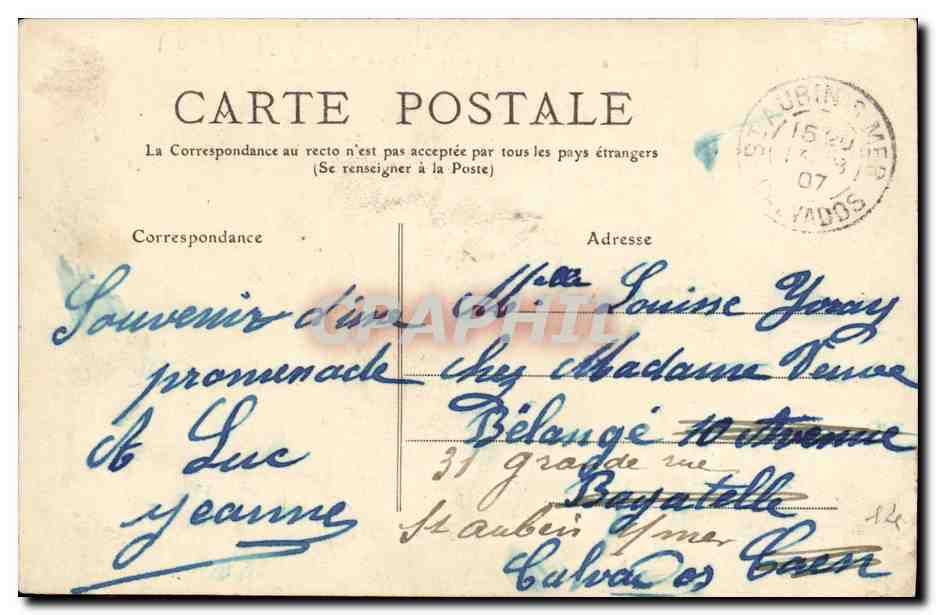 CARTE POSTALE
La Correspondance au recto n'est pas acceptée par tous les pays étrangers
(Se renseigner à la Poste)
ST AUBIN S MER
07
CALVADOS
Correspondance
Adresse
Souvenir d'une
promenade
A Luc
Jeanne
Melle Louise Yoray
chez Madame Veuve
Bélangé 10 Avenue
31 grande rue
Bagatelle
St aubin s/mer
Calvados Caen
12€
CPAPHIL